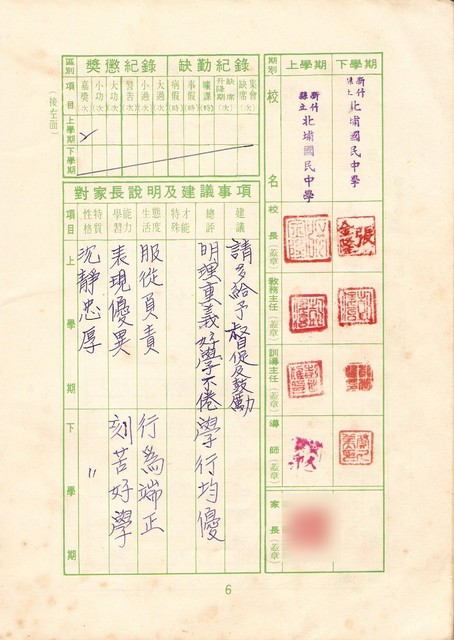 期別 上學期 下學期
校名
新竹縣立北埔國民中學
新竹縣立北埔國民中學
校長(蓋章)
張金隆
教務主任(蓋章)
訓導主任(蓋章)
導師(蓋章)
家長(蓋章)
區別 獎懲紀錄 缺勤紀錄
項目 嘉獎(次) 小功(次) 大功(次) 警告(次) 小過(次) 大過(次) 病假(時) 事假(時) 曠課(時) 升降期缺席(次) 集會缺席(次)
上學期
下學期
(後左面)
對家長說明及建議事項
項目 性格特質 學習能力 生活態度 特殊才能 總評 建議
上學期
沉靜忠厚
表現優異
服從負責
明理重義好學不倦
請多給予督促及鼓勵
下學期
〃
刻苦好學
行為端正
學行均優
6